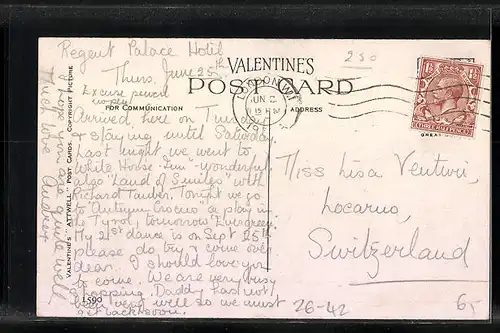 Regent Palace Hotel
Thurs. June 25th
VALENTINES
POST CARD
FOR COMMUNICATION
ADDRESS
Excuse pencil
no pen
Arrived here on Tuesday
& staying until Saturday
Last might we went to
White Horse Inn - wonderful
also "Land of Smiles" with
Richard Tauber. Tonight we go
to "Autumn Crocus" a play in
the Tyrol, tomorrow "Evergreen".
My 21st dance is on Sept. 25th
please do try & come over
dear. I should love you
to come. We are very busy
shopping. Daddy had not
been very well so we must
get back soon.
I hope you are well
Much love
VALENTINES "ATTWELL" POST CARDS. COPYRIGHT PICTURE
1590
250
LONDON. W.1
JUN
THREE HALFPENCE
Miss Lisa Venturi,
Locarno,
Switzerland
26-42
65